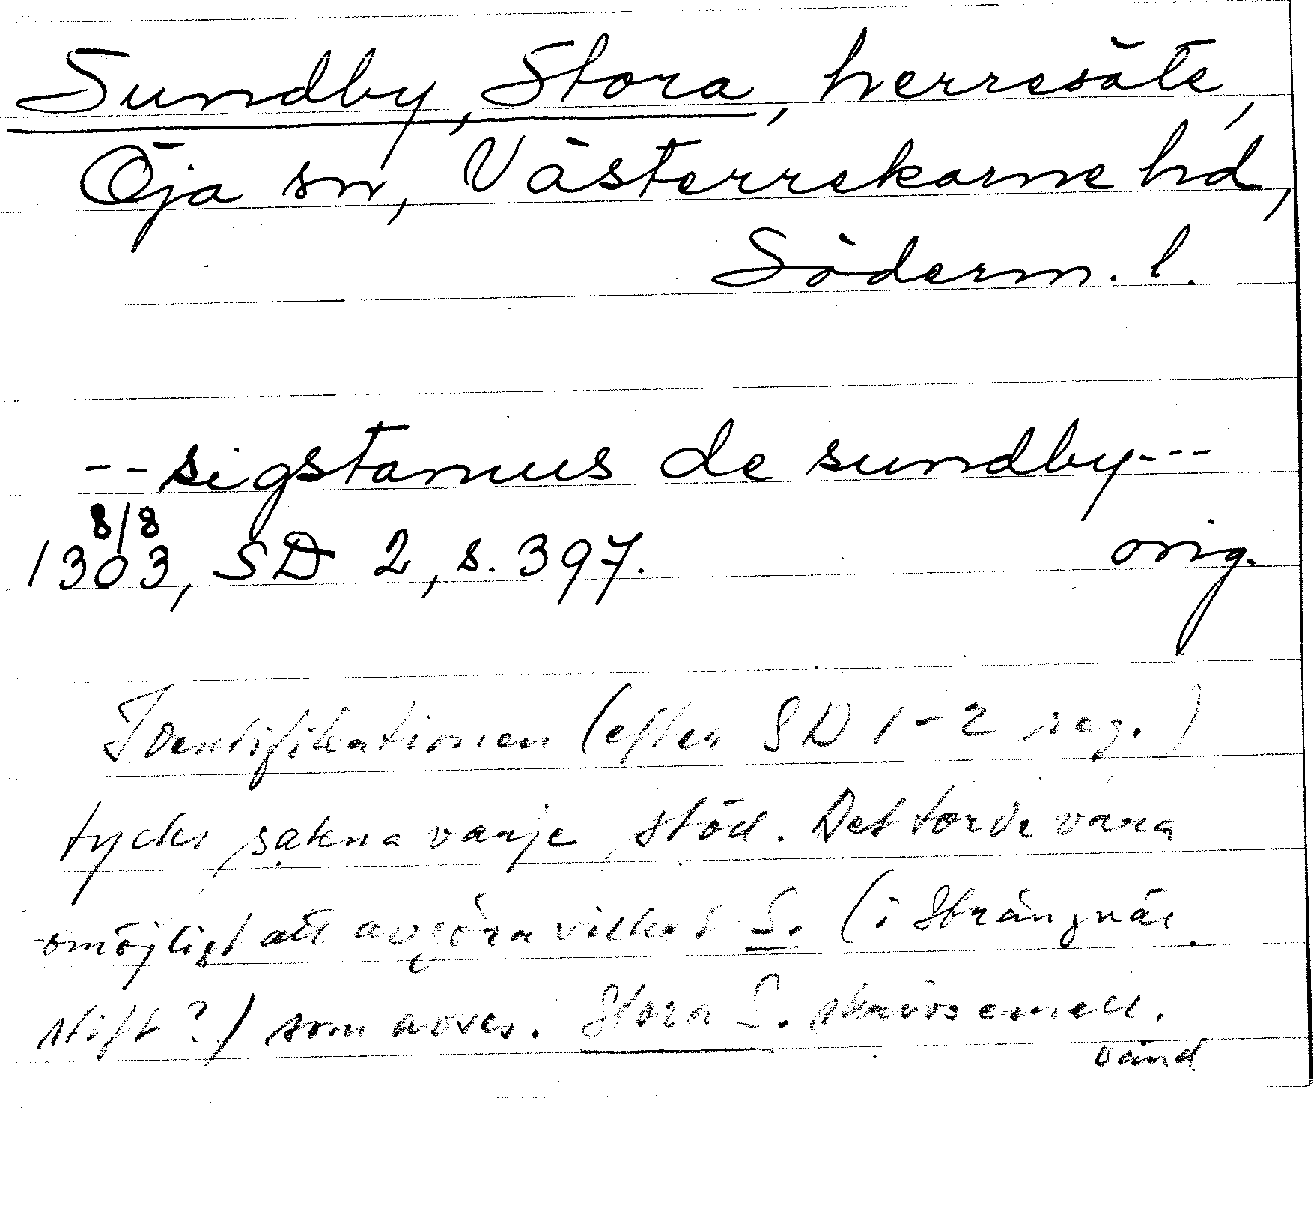 Sundby, Stora, herresäte,
Öja sn, Västerrekarne hd,
Söderm. l.
--sigstamus de sundby---
8/8
1303, SD 2, s. 397. orig.
Identifikationen (efter SD 1-2 reg.)
tycks sakna varje stöd. Det torde vara
omöjligt att avgöra vilket S. (i Strängnäs
stift?) som avses. Stora S. skrivs emell.
vänd